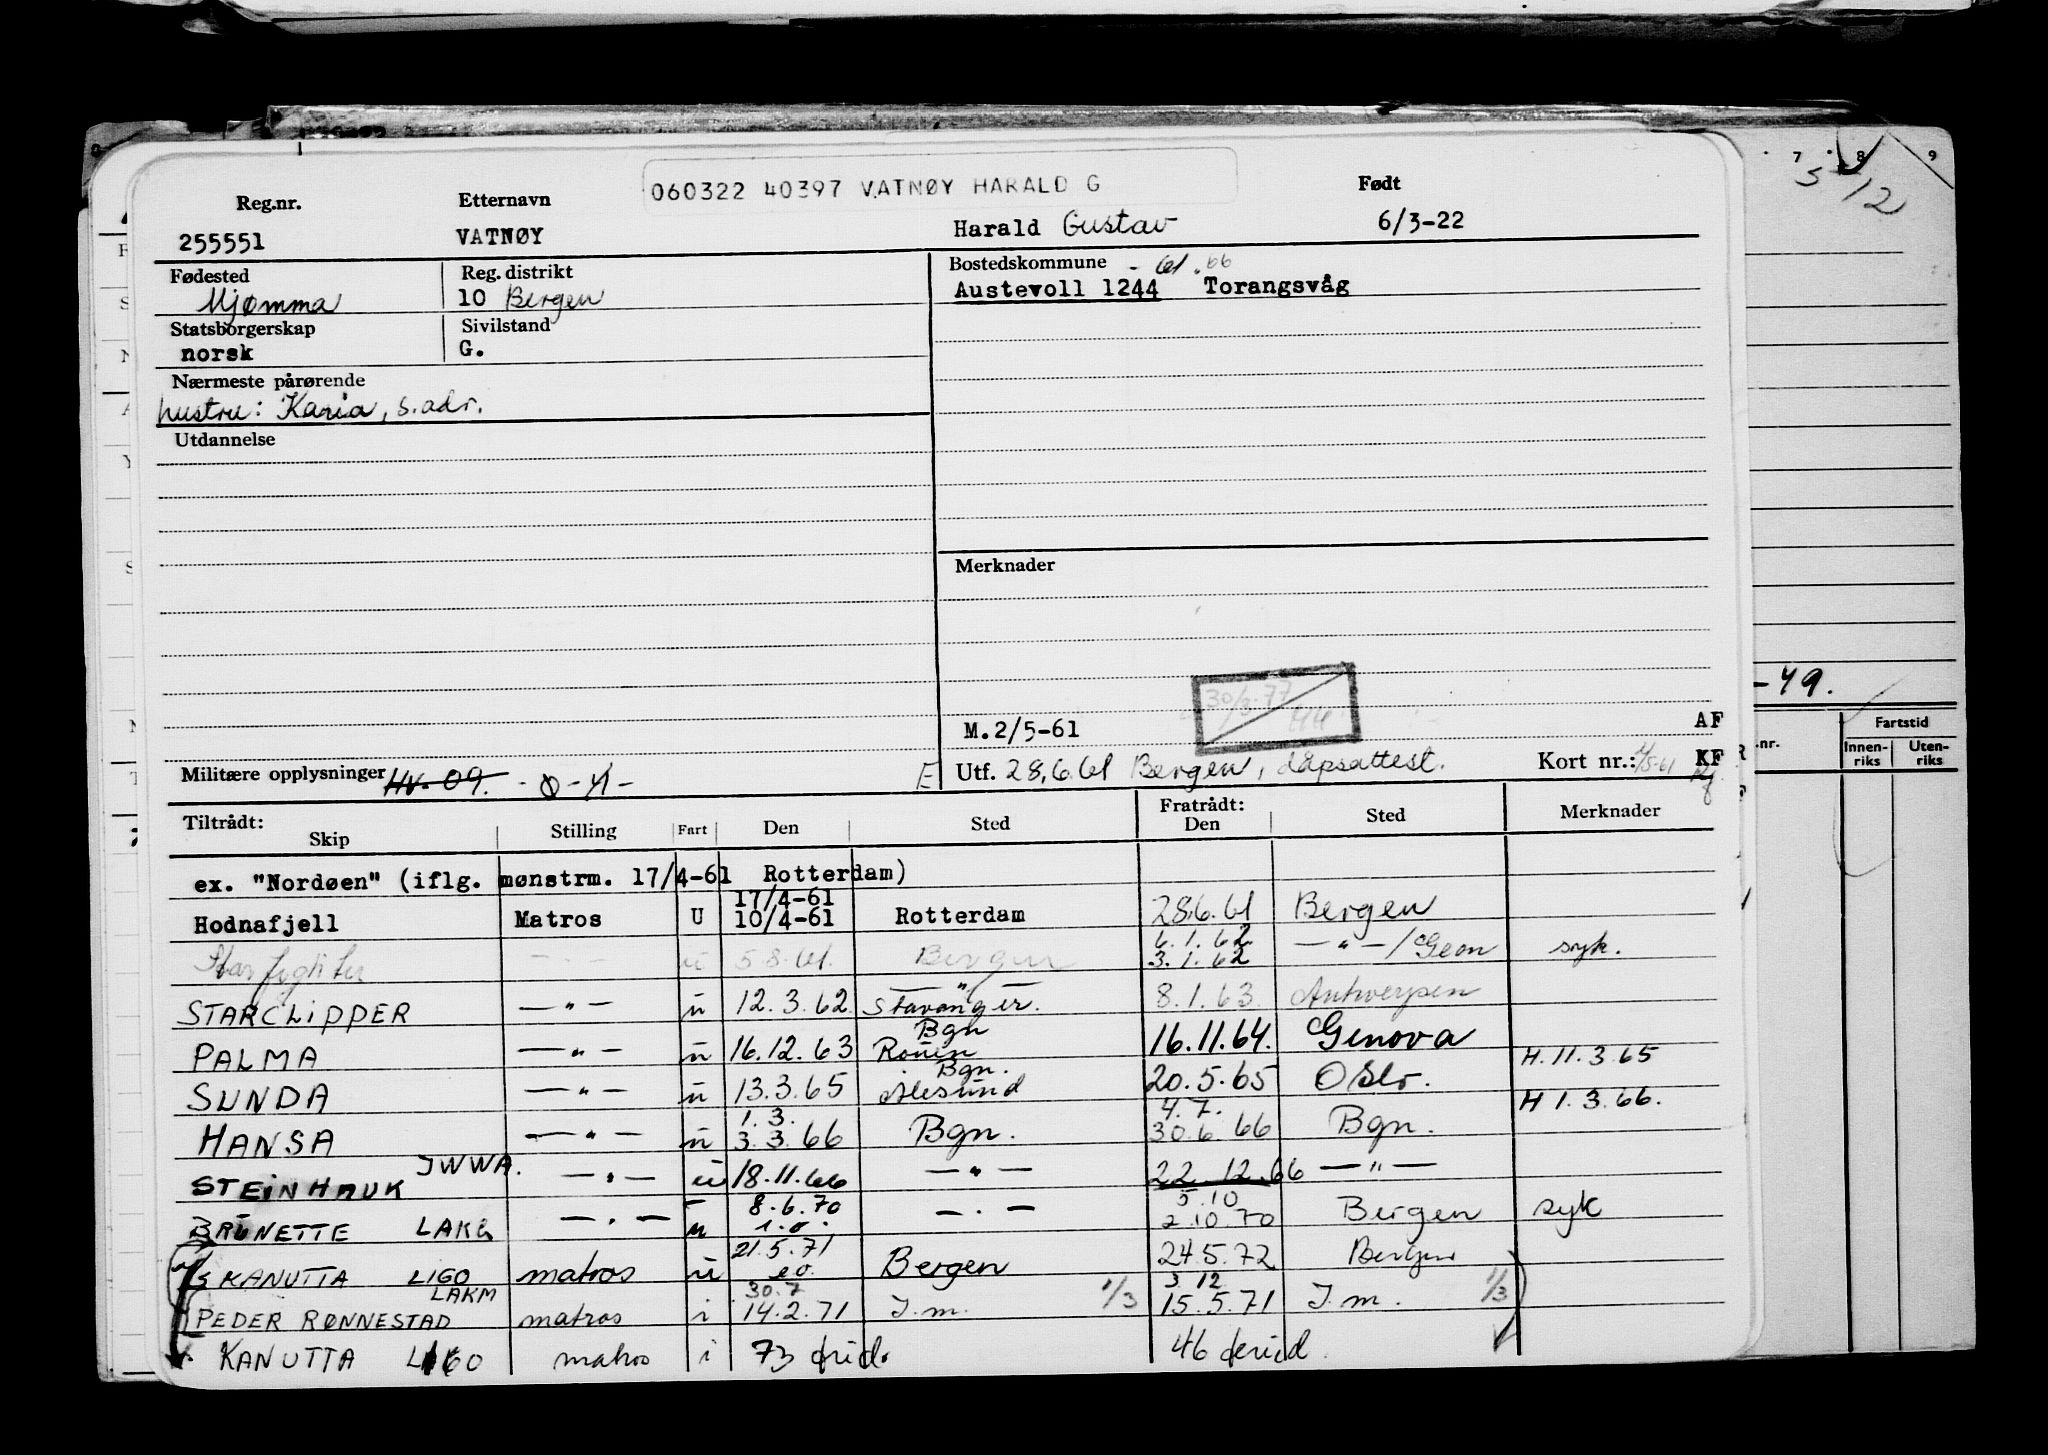 060322 40397 VATNØY HARALD G
Reg.nr. Etternavn Født
255551 VATNØY Harald Gustav 6/3-22
Fødested Reg. distrikt Bostedskommune - 61 . 66
Mjømma 10 Bergen Austevoll 1244 Torangsvåg
Statsborgerskap Sivilstand
norsk G.
Nærmeste pårørende
hustru: Karia, s.adr.
Utdannelse
Merknader
30/3-77
M.2/5-61 AF
Utf. 28.6.61 Bergen, dåpsattest. Kort nr.: KF
Militære opplysninger HV-09. E
Tiltrådt: Skip Stilling Fart Den Sted Fratrådt: Den Sted Merknader
ex. "Nordøen" (iflg. mønstrm. 17/4-61 Rotterdam)
17/4-61
Hodnafjell Matros U 10/4-61 Rotterdam 28.6.61 Bergen
6.1.62
Starfighter - " - u 5.8.61. Bergen 3.1.62 - " - / Geon syk.
- " -
STARCLIPPER - " - u 12.3.62 Stavanger. 8.1.63. Antwerpen
Bgn
PALMA - " - u 16.12.63 Rouen 16.11.64. Genova H.11.3.65
Bgn.
SUNDA - " - u 13.3.65 Ålesund 20.5.65 Oslo. H 1.3.66.
1.3. 4.7.
HANSA - " - u 3.3.66 Bgn. 30.6.66 Bgn.
STEINHAUK JWWA. - " - u 18.11.66 - " - 22.12.66 - " -
8.6.70 5.10
BRUNETTE LAKG - " - u - " - 2.10.70 Bergen syk
21.5.71
KANUTTA LIGO matros u Bergen 24.5.72 Bergen
LAKM 30.7 3.12
PEDER RØNNESTAD matros i 14.2.71 J.m. 1/3 15.5.71 J.m. 1/3
KANUTTA LIGO matros i 73 46
7 8 9
5/12
-49.
Fartstid
Innen-
riks
Uten-
riks